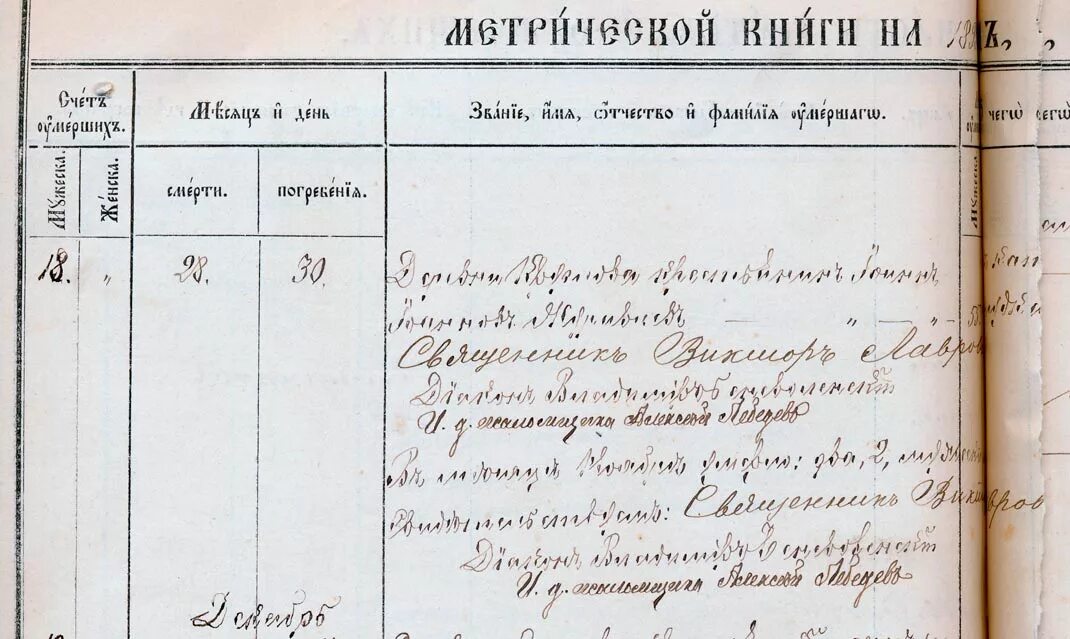 МЕТРИ́ЧЕСКОЙ КНИ́ГИ НА 18 Ъ,
Сче́тъ ᲂу҆ме́ршихъ.
Мѣ́сяцъ и҆ де́нь
Зва́нїе, и҆́мѧ, ѻ҆́тчество и҆ фами́лїѧ ᲂу҆ме́ршагѡ.
чегѡ̀
Мꙋ́жеска.
Же́нска.
сме́рти.
погребе́нїѧ.
Мꙋ́жеска
18. „ 28. 30. Деревни крестьянинъ Іоаннъ
Іоанновъ — „ — „ —
Священникъ Викторъ Лавров
Діаконъ Владиміръ
И. д. псаломщика Алексѣй Лебедевъ
Въ мѣсяцѣ Ноябрѣ умерло: два, 2,
Священникъ Викт вров
Діаконъ Владиміръ
И. д. псаломщика Алексѣй Лебедевъ
Декабрь